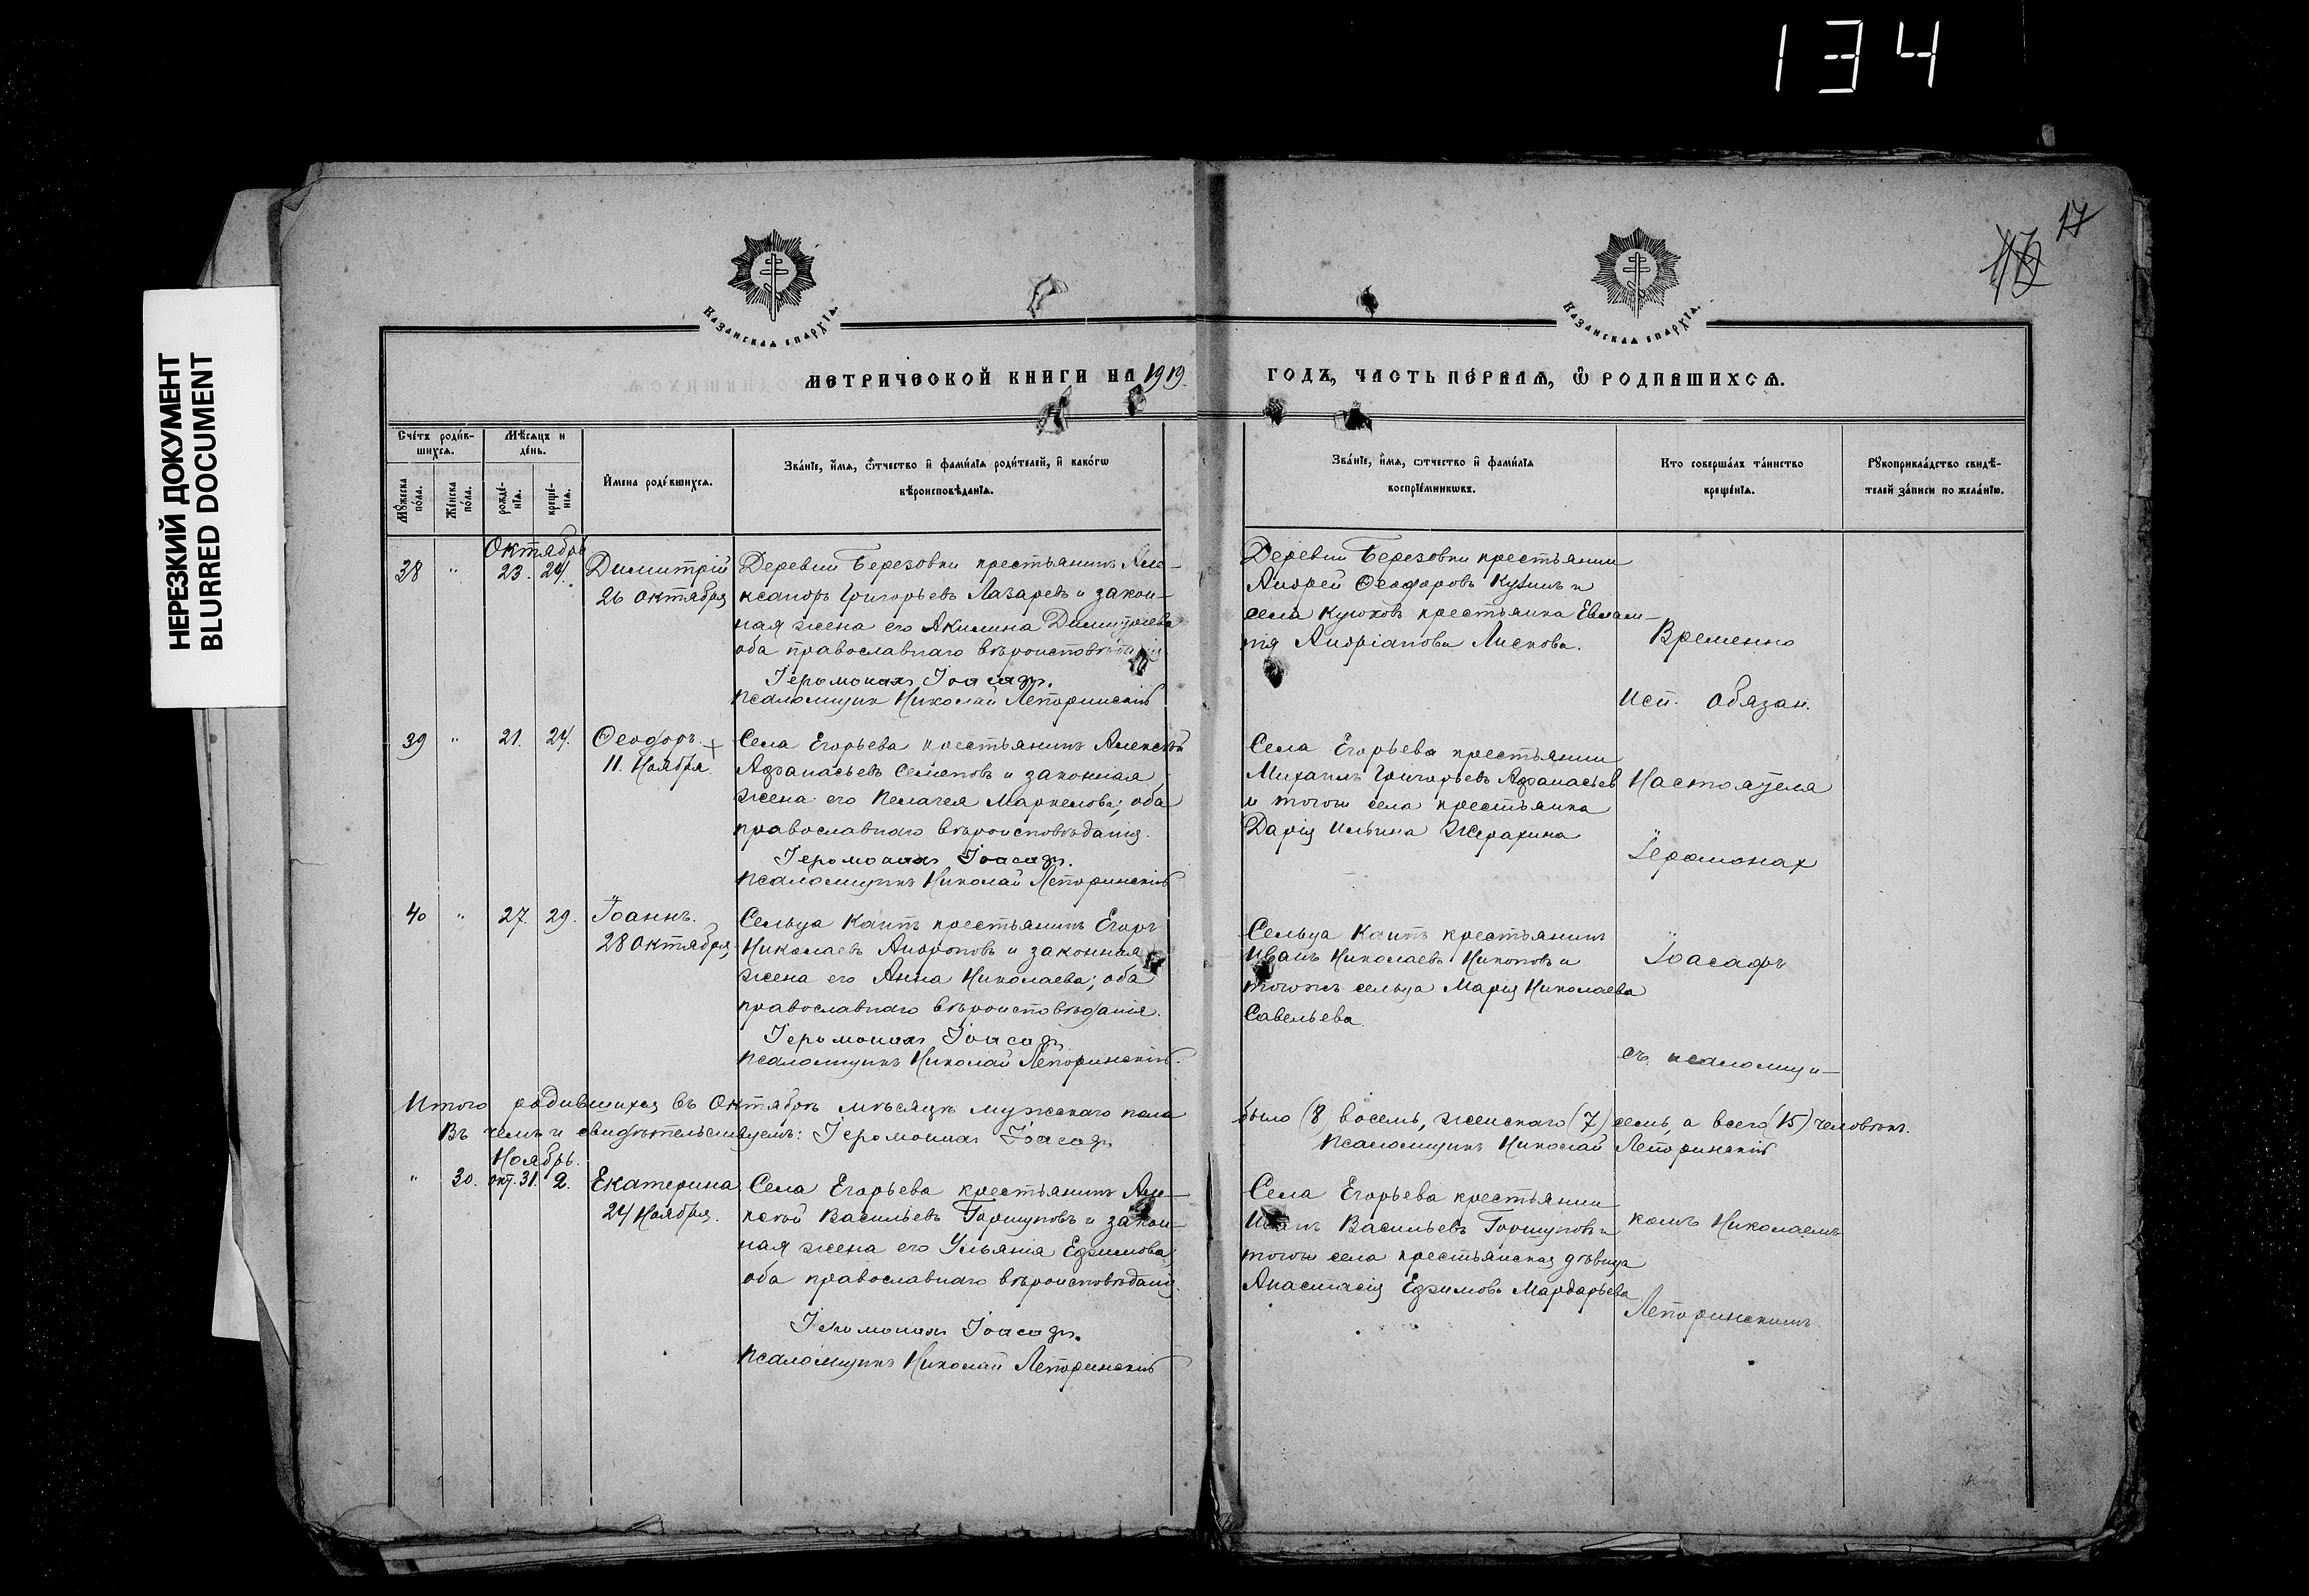 134
НЕРЕЗКИЙ ДОКУМЕНТ
BLURRED DOCUMENT
17
Казанская епархїя.
Казанская епархїя.
МЕТРИЧЕСКОЙ КНИГИ НА 1919
ГОДЪ, ЧАСТЬ ПЕРВАЯ, Ѿ РОДИВШИХСЯ.
Сче́тъ роди́в-
шихся.
Мѣсяцъ и
де́нь.
Му́жеска
по́ла.
Же́нска
по́ла.
рожде́-
нїя.
креще́-
нїя.
И҆мена роди́вшихся.
Зва́нїе, и҆́мя, ѻ҆́тчество и҆ фами́лїя роди́телей, и҆ како́гѡ
вѣроисповѣ́данїя.
Зва́нїе, и҆́мя, ѻ҆́тчество и҆ фами́лїя
воспрїе́мникѡвъ.
Кто соверша́лъ та́инство
креще́нїя.
Рꙋкоприкла́дство свидѣ́-
телей за́писи по жела́нїю.
Октябрь
38 " 23. 24. Димитрій
26 Октября
Деревни Березовки крестьянинъ Але-
ксандръ Григорьевъ Лазаревъ и закон-
ная жена его Акилина Димитріева
оба православнаго вѣроисповѣданія
Іеромонахъ Іоасафъ.
Псаломщик Николай Лепоринскій
Деревни Березовки крестьянин
Андрей Ѳеодоровъ Кузьмин и
села крестьянка Евлам-
пія Андріанова Лискова.
Временно
Исп. Обязан.
39 " 21. 24. Ѳеодоръ. +
11. Ноября.
Села Егорьева крестьянинъ Алексѣй
Афанасьевъ Семеновъ и законная
жена его Пелагея Маркелова; оба
православнаго вѣроисповѣданія.
Іеромонахъ Іоасафъ.
Псаломщикъ Николай Лепоринскій
Села Егорьева крестьянин
Михаилъ Григорьевъ Афанасьев
и тогож села крестьянка
Дарія Ильина
Настоятеля
Іеромонах
40 " 27. 29. Іоаннъ.
28 Октября
Сельца Каипъ крестьянинъ Егоръ
Николаевъ Андроновъ и законная
жена его Анна Николаева; оба
православнаго вѣроисповѣданія.
Іеромонахъ Іоасафъ
Псаломщикъ Николай Лепоринскій.
Сельца Каипъ крестьянинъ
Иванъ Николаевъ Никоновъ и
тогожъ сельца Марія Николаева
Савельева
Іоасафъ
съ псаломщи-
Итого родившихся въ Октябрѣ мѣсяцѣ мужскаго пола
было (8) восемь, женскаго (7) семь, а всего (15) человѣкъ.
Въ чемъ и свидѣтельствуемъ: Іеромонахъ Іоасафъ
Псаломщикъ Николай Лепоринскій
Ноябрь.
" 30. окт. 31. 2. Екатерина
24 Ноября.
Села Егорьева крестьянинъ Але-
ксѣй Васильевъ Горшуновъ и закон-
ная жена его Ульянія Ефимова;
оба православнаго вѣроисповѣданія.
Іеромонахъ Іоасафъ.
Псаломщикъ Николай Лепоринскій
Села Егорьева крестьянин
Иванъ Васильевъ Горшуновъ и
тогож села крестьянская дѣвица
Анастасія Ефимова Мардарьева
комъ Николаемъ
Лепоринскимъ.